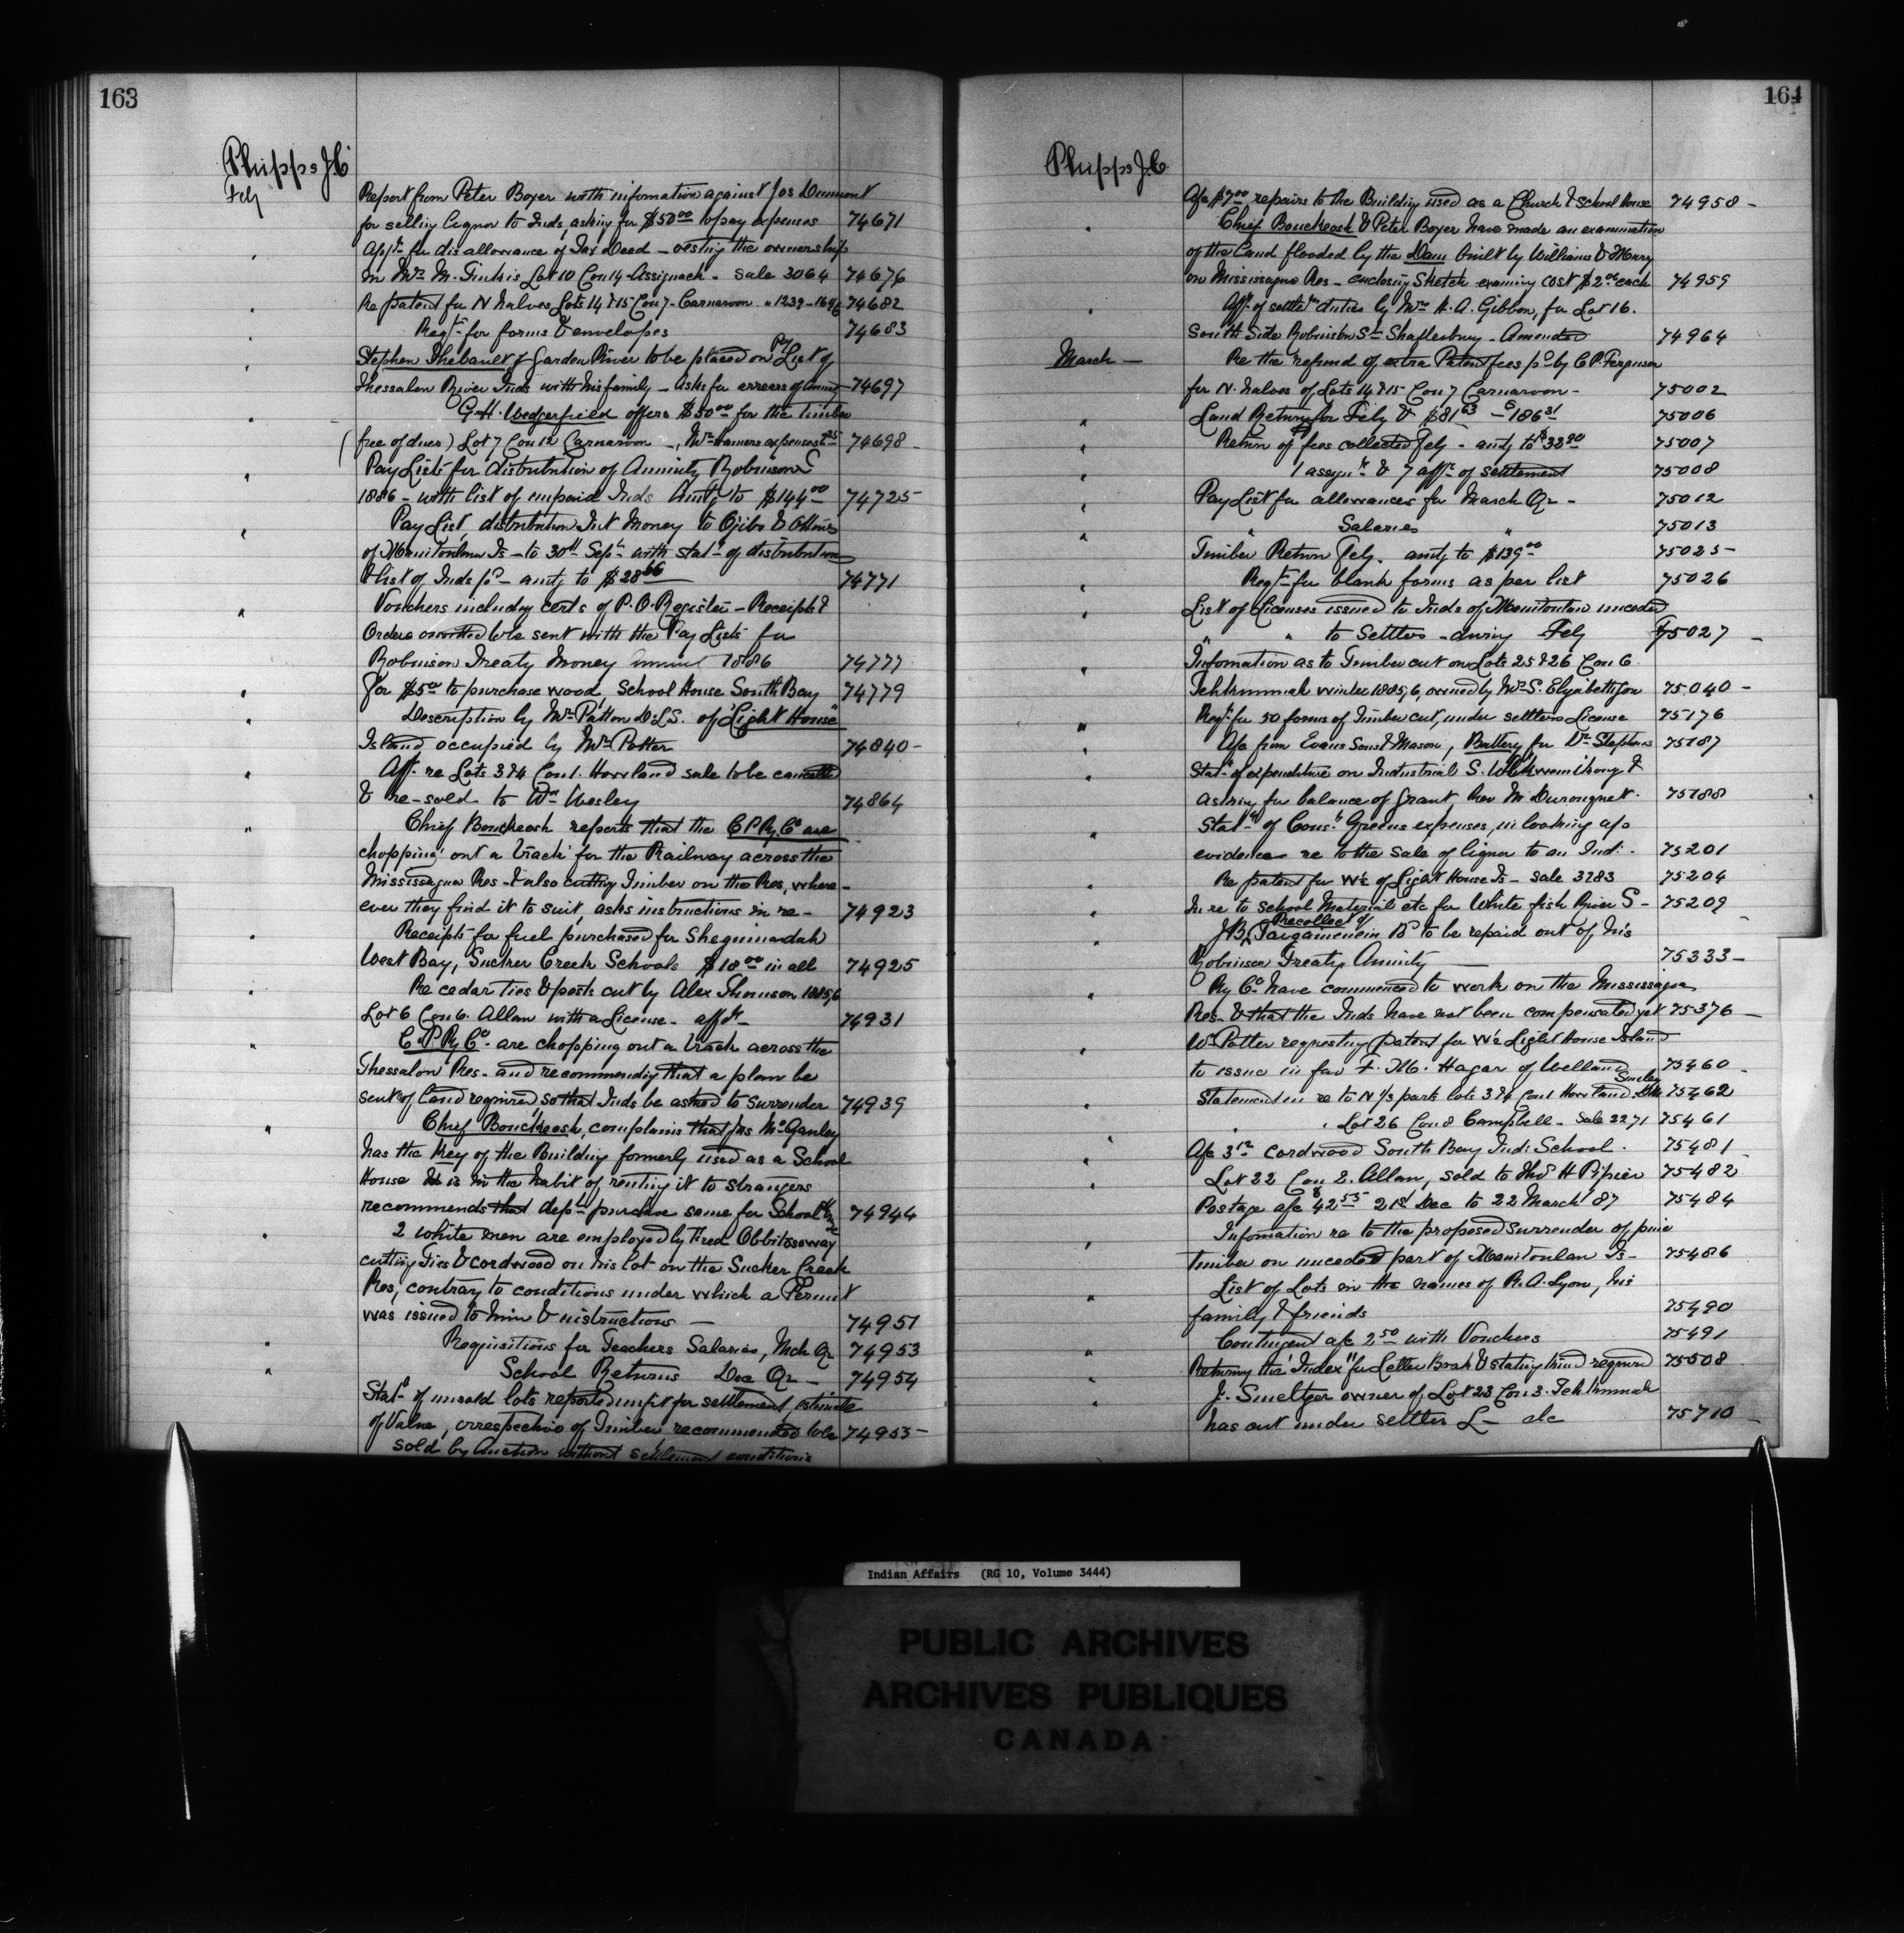 163
Phipps J.C
Feby
Report from Peter Boyer with infomation against Jos Dumont
for selling liquor to Inds, asking for $50 00 to pay expenses 74671
" Appn for disallowance of Tax Deed – vesting the ownership
in Mrs M. Tinkis Lot 10 Con 14 Assiginack – Sale 3064 74676
" Re patent for N halves, Lots 14 & 15 Con 7 – Carnarvon " 1239 – 1696 74682
" Reqn for forms & envelopes 74683
" Stephen Thebault of Garden River to be placed on Py List of
Thessalon River Inds with his family – asks for arrears of annuity – 74697
" G. H. Wedgerfield offers $50 00 for the timber
(free of dues) Lot 7 Con 12 Carnarvon –, Mr expenses 74698 –
" Pay Lists for distribution of Annuity Robinson S
1886 – with list of unpaid Inds amtg to $144 00 74725
" Pay List, distribution Int Money to Ojibs & Ottwas
of Manitoulin Is – to 30th Sept with statt of distribution
& list of Inds pd – amtg to $28 66 74771
" Vouchers including certs of P.O. Register – Receipts &
Orders omitted to be sent with the Pay Lists for
Robinson Treaty Money annuity 1886 74777
" For $5 00 to purchase wood, School House South Bay 74779
" Description by Mr Patton D.L.S. of "Light House"
Island occupied by Mr Potter 74840 –
" Aff. re Lots 3 & 4 Con 1. Howland sale to be cancelled
& re-sold to Wm Wesley 74864
" Chief Bouckeosh reports that the C P Ry Co are
chopping out a track for the Railway across the
Mississagua Res – & also cutting Timber on the Res, where –
ever they find it to suit, asks instructions in re – 74923
" Receipts for fuel purchased for Sheguiandah
West Bay, Sucker Creek Schools $18 00 in all 74925
" Re cedar Ties & posts cut by Alex Thomson 1885/6
Lot 6 Con 6. Allan with a License – affdt – 74931
" C. P. Ry Co. are chopping out a track across the
Thessalon Res – and recommending that a plan be
sent of land required so that Inds be asked to surrender 74939
" Chief Bouckeosh, complains that Jas McGanley
has the Key of the Building formerly used as a School
House & is in the habit of renting it to strangers
recommends that Dept purchase same for School Hse 74944
" 2 white men are employed by Fred Obbitossoway
cutting Ties & Cordwood on his lot on the Sucker Creek
Res, contrary to conditions under which a Permit
was issued to him & instructions – 74951
" Requisitions for Teachers Salaries, Mch Qr 74953
" School Returns Dec Qr – 74954
Statt of unsold lots reported unfit for settlement, estimate
of Value, irrespective of Timber recommended to be 74955 –
sold by Auction without settlement conditions
164
Phipps J.C.
A/c $7 00 repairs to the Building used as a Church & School House 74958 –
" Chief Bouckeosh & Peter Boyer have made an examination
of the Land flooded by the Dam built by Williams & Murry
on Mississagua Res – enclosing Sketch examing cost $2 00 each 74959
" Aff. of settlt duties by Mrs H. A. Gibbon, for Lot 16.
South Side Robinson St Shaftesbury – Amended 74964
March – Re the refund of extra Patent fees pd by C P. Ferguson
for N. halves of Lots 14 & 15 Con 7 Carnarvon – 75002
" Land Returns for Feby & $81 63 – $186 31 75006
" Return of fees collected Feby – amtg to $33 20 75007
" 1 assignt & 7 affts of settlement 75008
" Pay List for allowances for March Qr – 75012
" " Salaries " 75013
Timber Return Feby. amtg to $139 00 75025 –
" Reqn for blank forms as per list 75026
" List of Licenses issued to Inds of Manitoulin unceded
" " to Settlers – during Feby 75027 –
" Infomation as to Timber cut on Lots 25 & 26 Con 6.
Tehkummah winter 1885/6, owned by Mrs S. Elizabeth 75040 –
" Reqn for 50 forms of Timber cut, under settlers License 75176
" A/c from Evans Sons & Mason, Battery for Dr Stephens 75187
" Statt of expenditure on Industrial S. Wikwemikong &
asking for balance of grant, Rev M Durongnet. 75188
" Statt of Const Greens expenses, in looking up
evidence re to the Sale of liquor to an Ind. – 75201
" Re patent for W½ of Light House Is – Sale 3283 75204
" In re to School Material etc for White fish River S – 75209
" J B, Recollect of $ to be repaid out of his
Robinson Treaty Annuity 75333 –
" Ry Co. have commenced to work on the Mississagua
Res – & that the Inds have not been compensated yet 75376 –
" W Potter requesting patent for W½ Light House Island
to issue in fav F. M. Hagar of Welland 75460 –
" Statement in re to N ⅓ parts lots 3 & 4 Con 1 Howland 75462
" " Lot 26 Con 8 Campbell – Sale 2271 75461
" A/c 3 12 cordwood South Bay Indi School. 75481
" Lot 22 Con 2. Allan, sold to Thos H Pipier 75482
Postage a/c $42 55 21st Dec to 22 March 87 75484
" Infomation re to the proposed surrender of pine
Timber on unceded part of Manitoulin Is – 75486
" List of Lots in the names of R. A. Lyon, his
family & friends 75490
" Contingent a/c 2 50 with Vouchers 75491
" Returng the "Index" for Letter Book & stating kind required 75508
" J. Smeltzer owner of Lot 23 Con 3. Tehkummah
has cut under settlers L – etc 75710 –
Indian Affairs (RG 10, Volume 3444)
PUBLIC ARCHIVES
ARCHIVES PUBLIQUES
CANADA